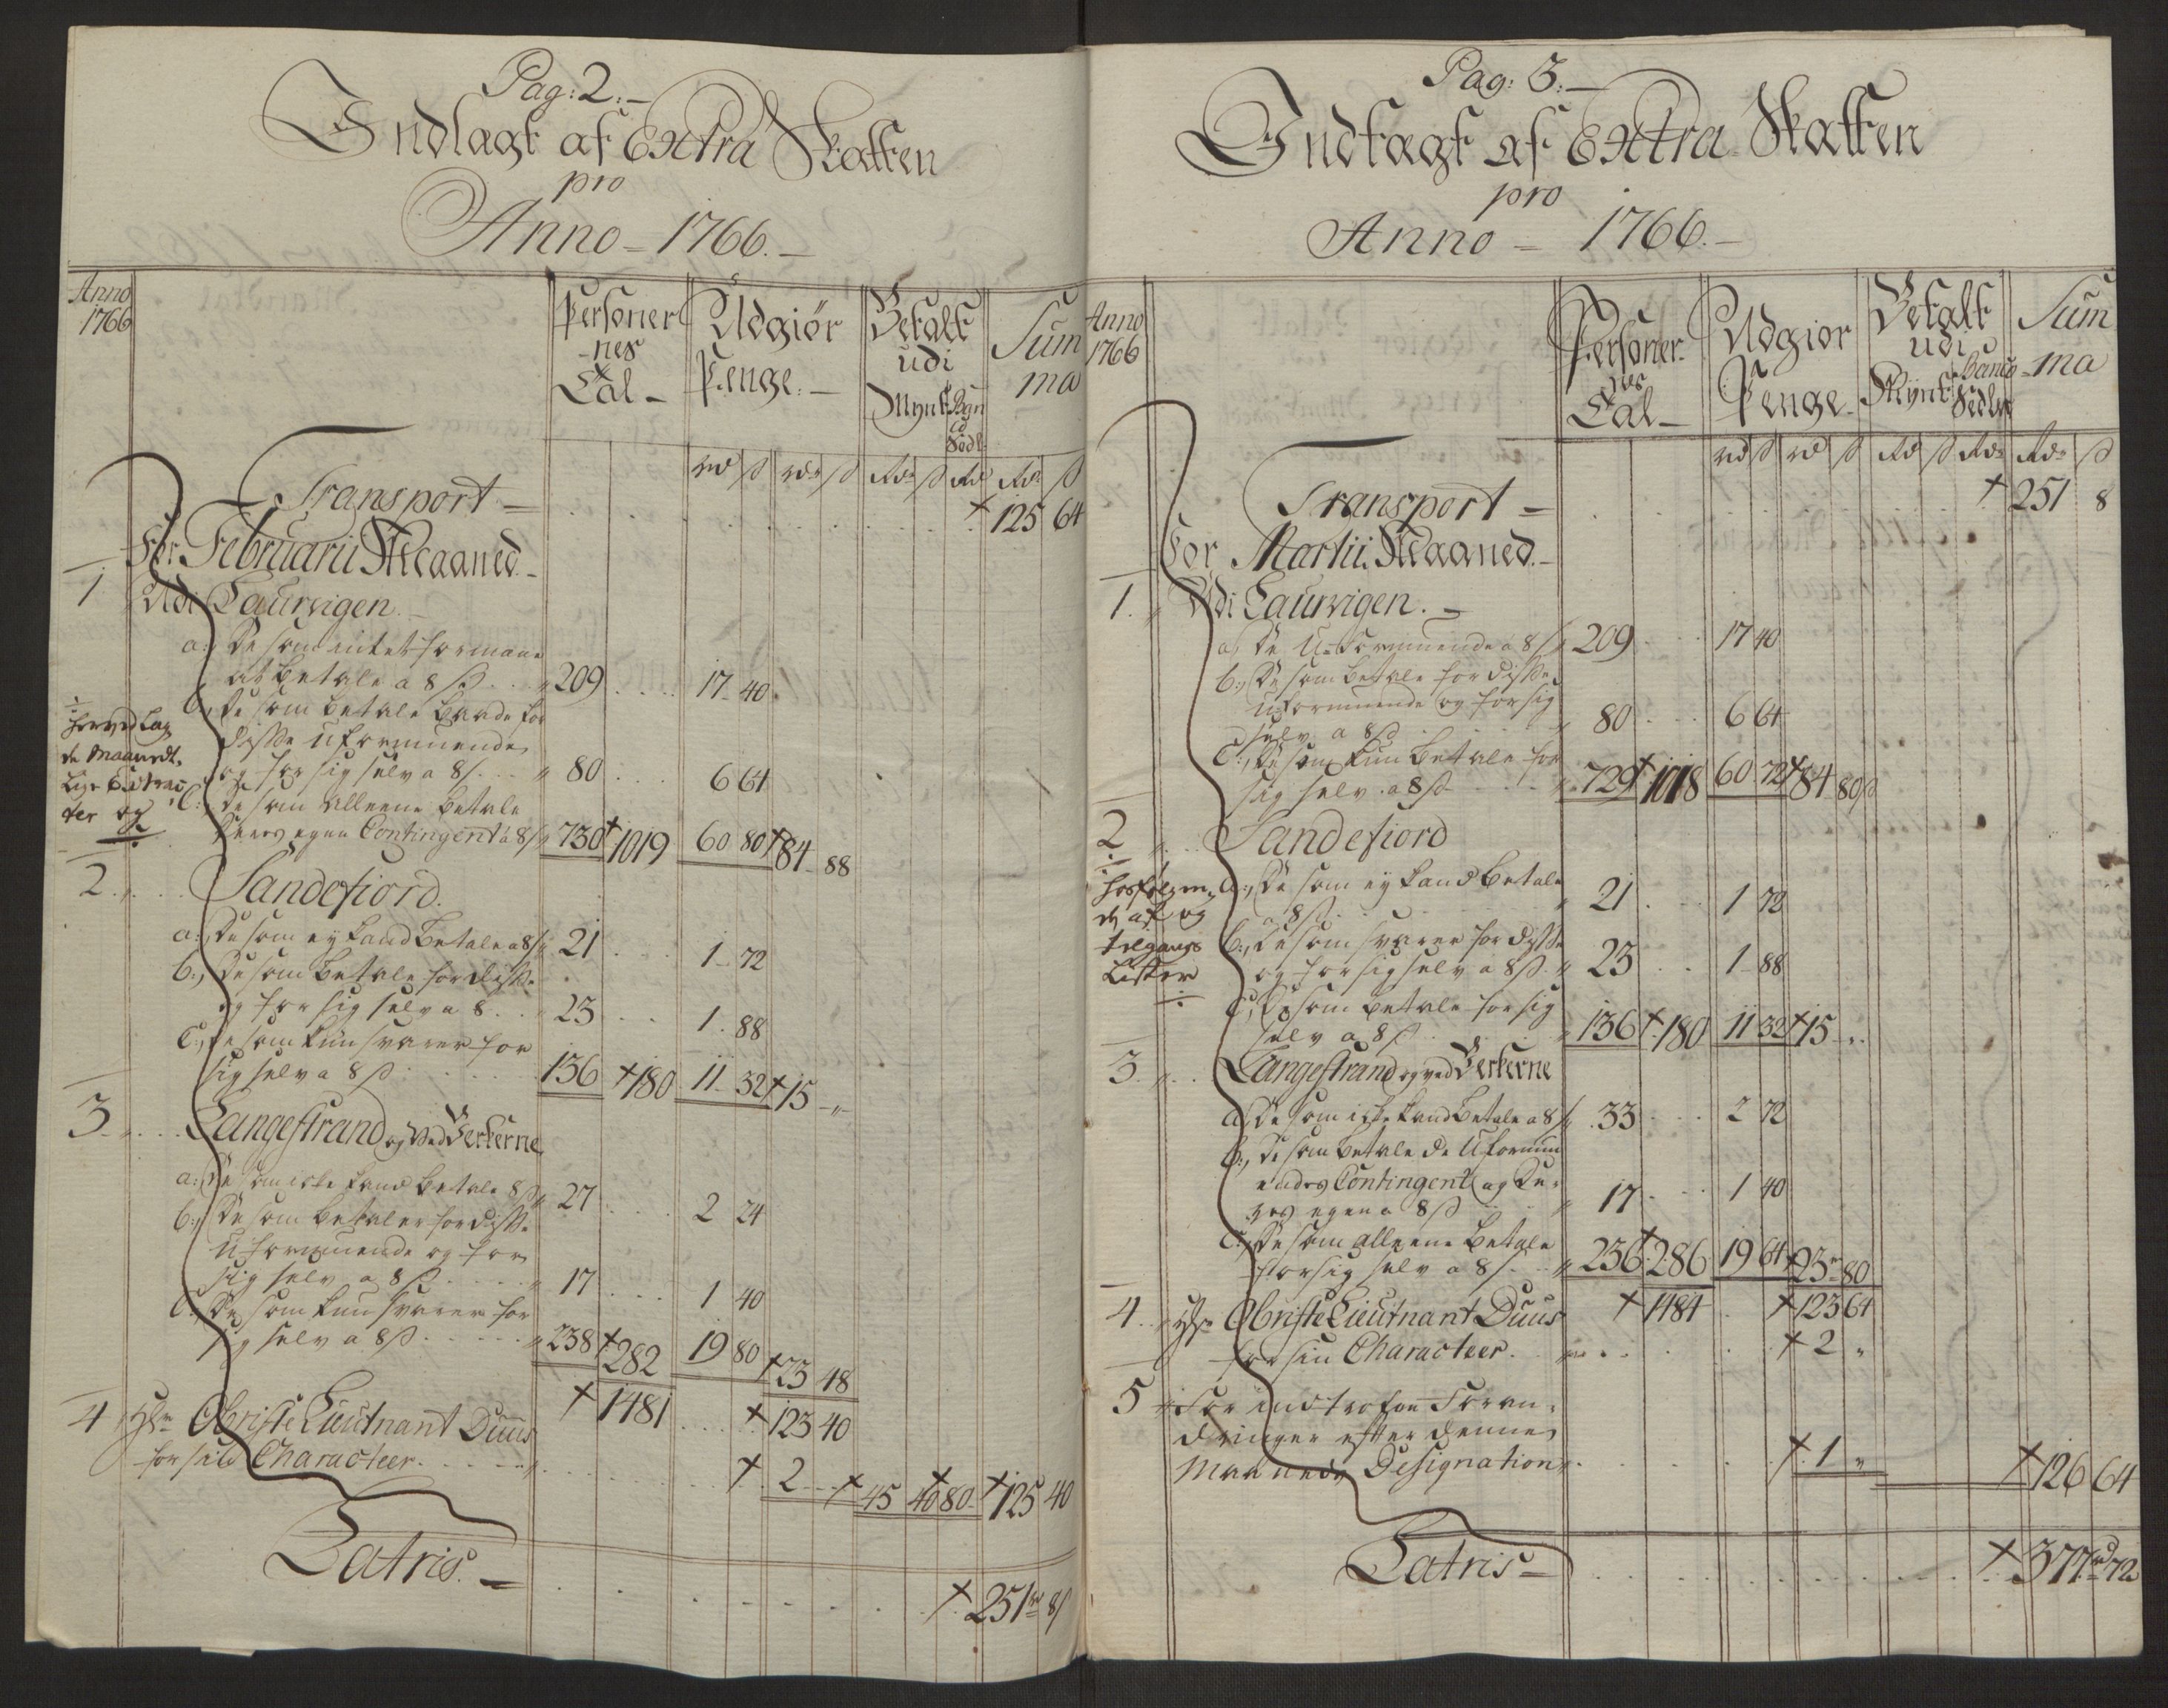 Pag: 2:–
Indtagt af Extra Skatten
pro
Anno – 1766.–
Anno
1766
Personer
nes
Tal –
Udgiør
Penge: –
Betalt
udi
Mynt
Sum
ma
rd ß rdr ß Rdr ß Rd Rdr ß
Transport – 125 64
For Februarii Maaned. –
1 Udi Laurvigen. –
a: De som intet formaae
at betale a 8 ß 209 17 40
b: De som betale baade for
disse uformuende
og for sig selv a 8 ß 80 6 64
c: De som alleene betale
deres egen Contingent a 8 ß 730 1019 60 80 84 88
2 Sandefiord.
a: De som ey kand betale a 8 ß 21 1 72
b:, De som betale for disse
og for sig selv a 8 23 1 88
c:, De som kun svarer for
sig selv a 8 ß 136 180 11 32 15 „
3 Langestrand og ved Verkerne
a: De som icke kand betale 8 ß 27 2 24
b:, De som betaler for disse
uformuende og for
sig selv a 8 ß 17 1 40
c: De som kun svarer for
sig selv a 8 ß 238 282 19 80 23 48
1481 123 40
4 Obriste Lieutnant Duus
for sin Characteer. 2 45 40 80 125 40
Latris. – 251 rd 8 ß
herved lag
de Maanedt-
lige Extrac
ter og
Pag: 3:–
Indtagt af Extra Skatten
pro
Anno – 1766.–
Anno
1766
Personer
nes
Tal –
Udgiør
Penge –
Betalt
udi
Mynt Banco
Sedler
Sum
ma
rd ß rd ß Rd ß Rdr Rdr ß
Transport – 251 8
For Martii Maaned. –
1. Udi Laurvigen. –
a, De U-formuende a 8 ß 209 17 40
b:, De som betale for disse
uformuende og for sig
selv a 8 ß 80 6 64
c:, De som kun betale for
sig selv a 8 ß 729 1018 60 72 84 80 ß
2 Sandefiord
a:, De som ey kand betale
a 8 ß 21 1 72
b:, De som svarer for disse
og for sig selv a 8 ß 23 1 88
c, De som betale for sig
selv a 8 ß 136 180 11 32 15 „
3 Langestrand og ved Verkerne
a, De som icke kand betale a 8 ß 33 2 72
b:, De som betale de Uformu
endes Contingent og De-
res egen a 8 ß 17 1 40
c:, De som alleene betale
for sig selv a 8 ß 236 286 19 64 23 80
1484 123 64
4 Obriste Lieutnant Duus
for sin Characteer. 2 „
5 For indtrofne Foran-
dringer efter denne
Maaneds Designation 1 „ 126 64
Latris – 377 rd 72
hosfølgen-
de af og
tilgangs
Lister